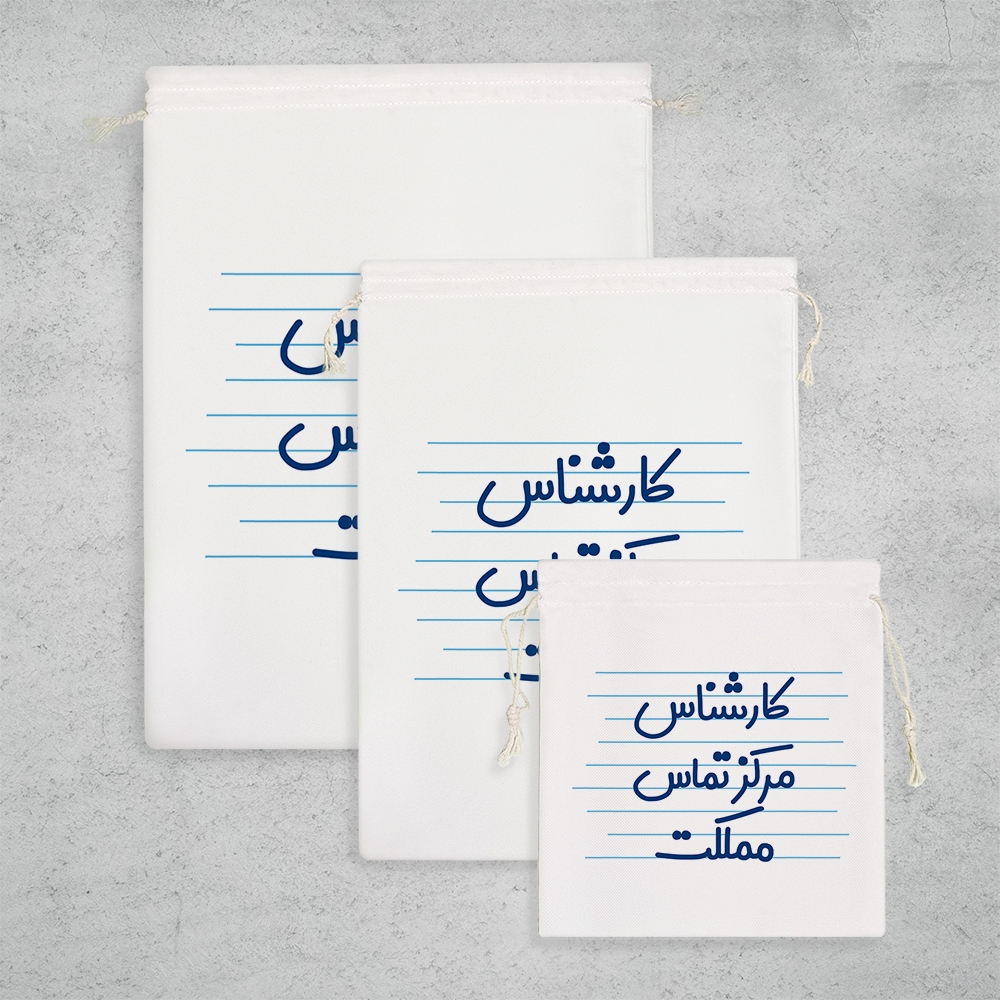 کارشناس
کارشناس
مرکز تماس
مملکت